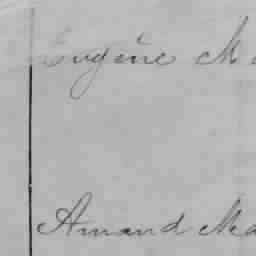 Eugène M
Amand Ma